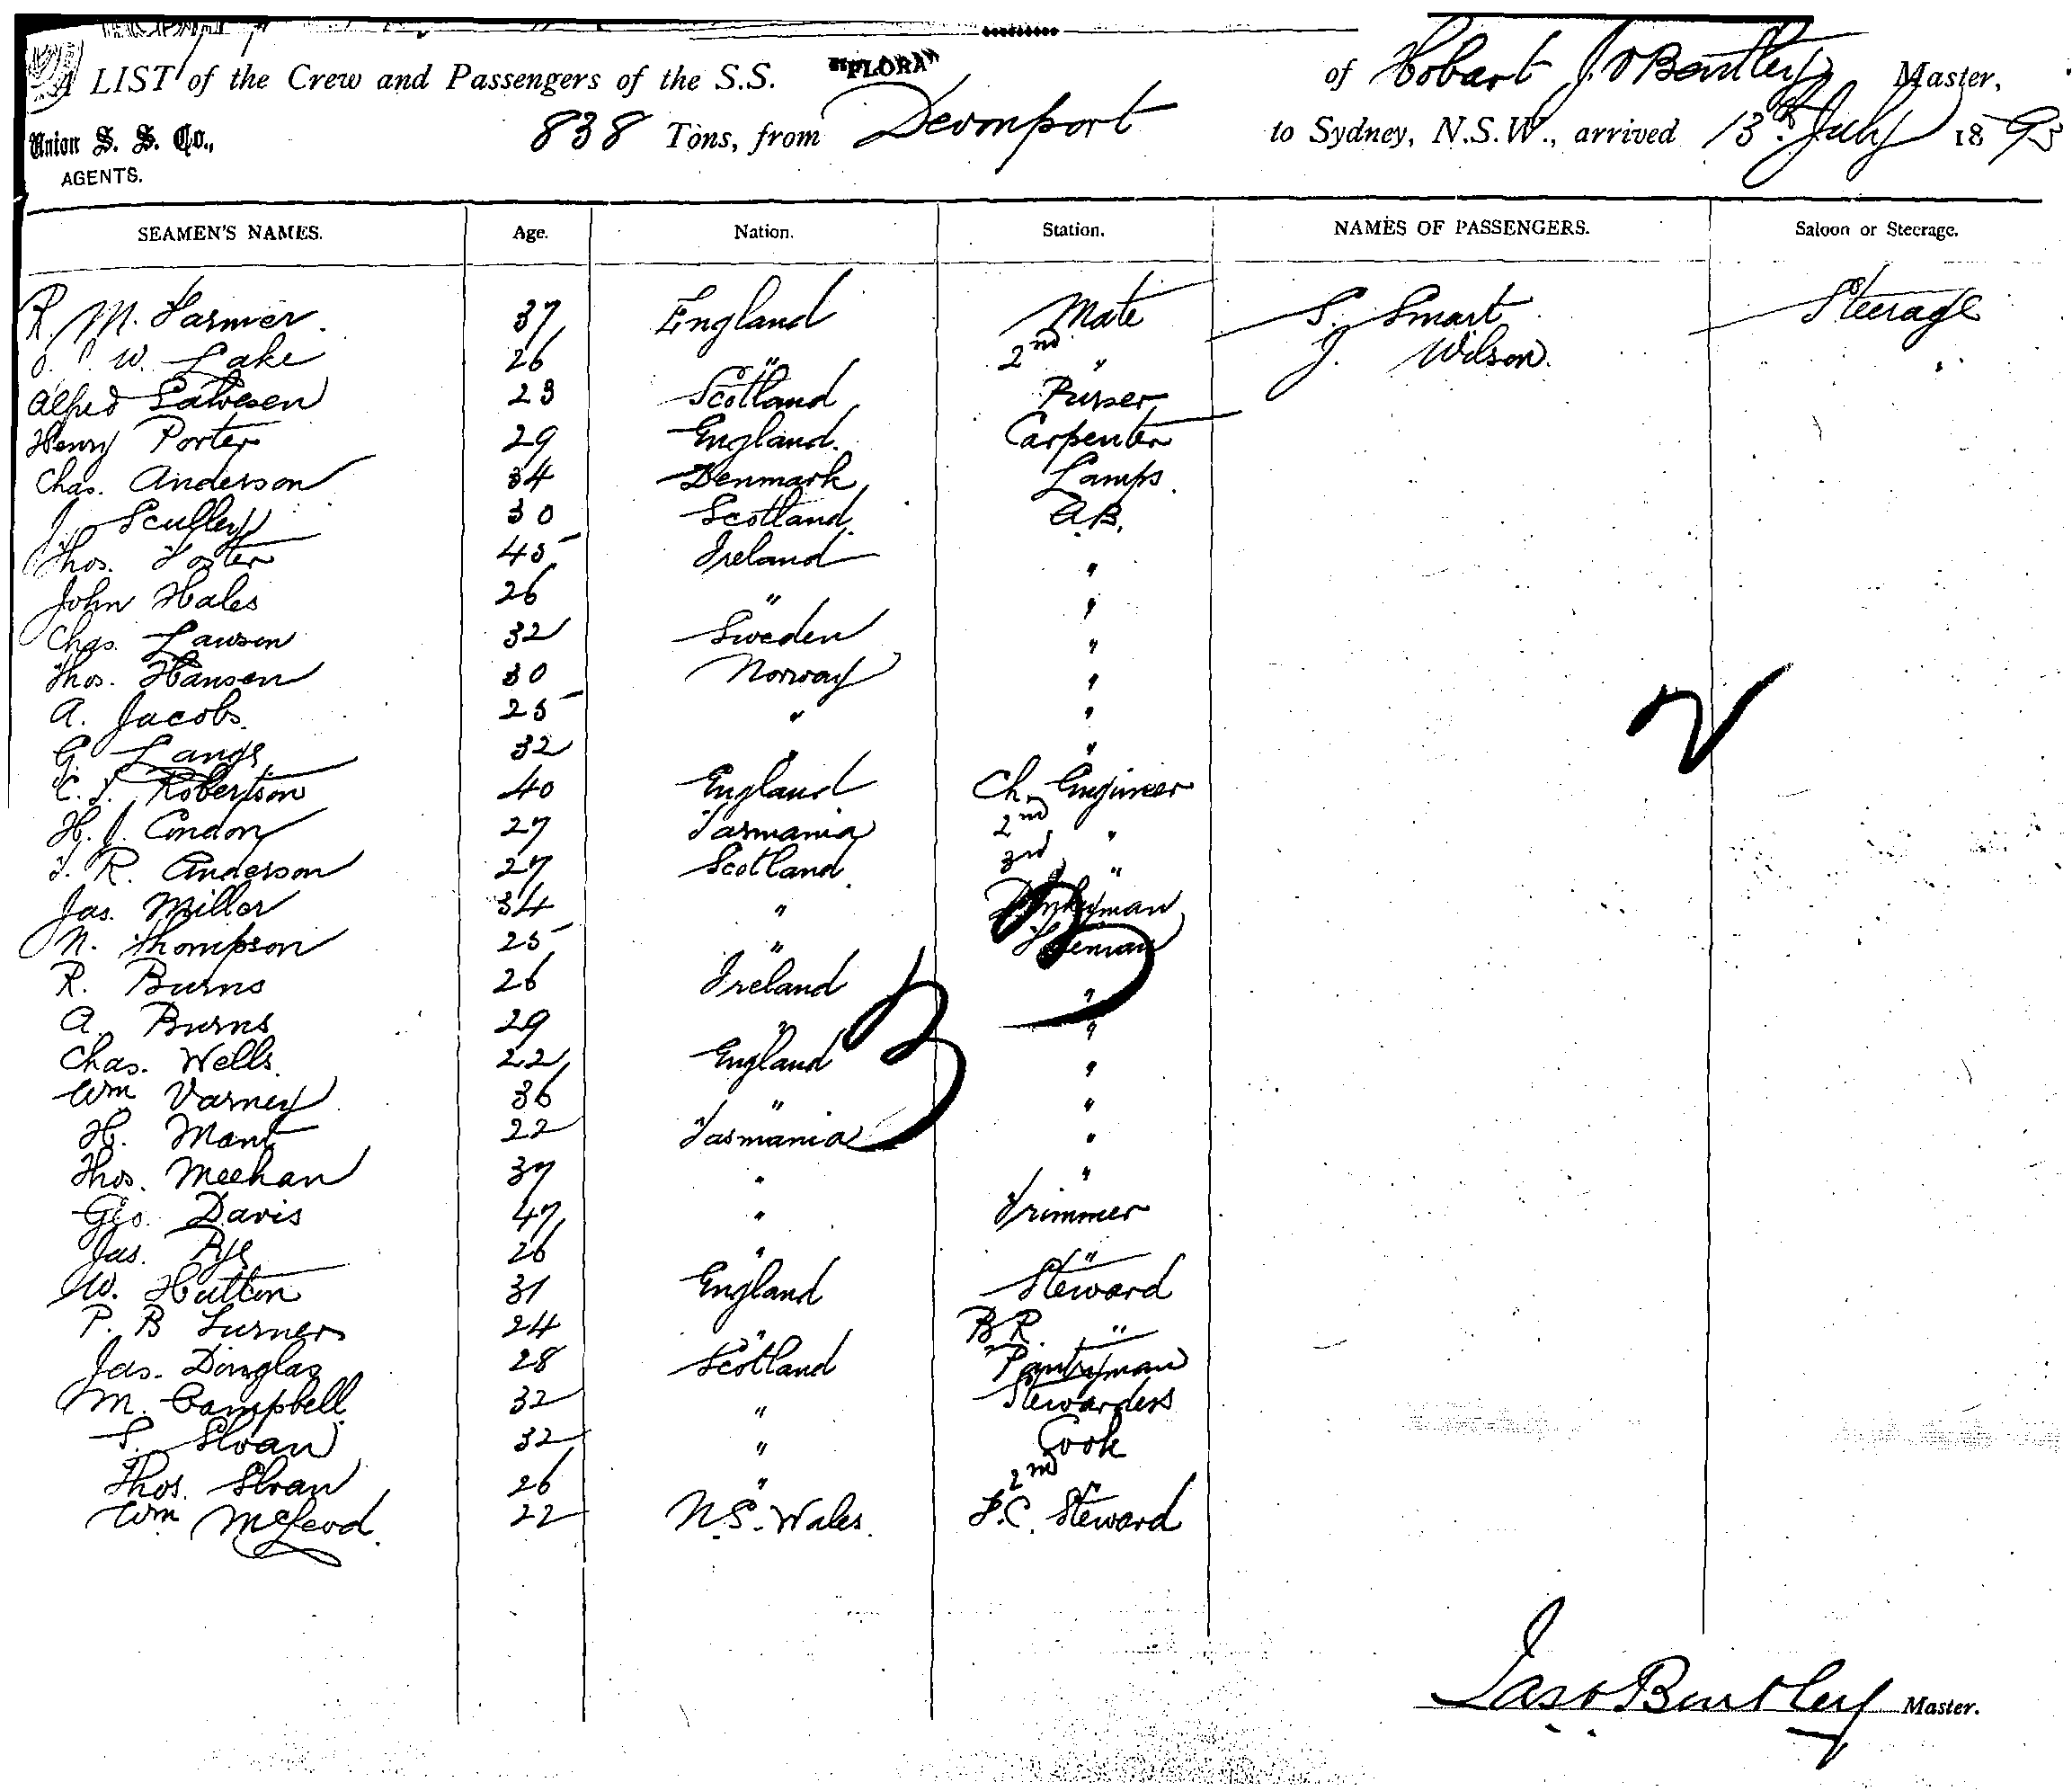 A LIST of the Crew and Passengers of the S.S. "FLORA" of Hobart J. Bentley Master,
Union S. S. Co.,
AGENTS.
838 Tons, from Devonport to Sydney, N.S.W., arrived 13th July 1893
SEAMEN'S NAMES. Age. Nation. Station. NAMES OF PASSENGERS. Saloon or Steerage.
R. M. Farmer. 37 England Mate S. Smart Steerage
W. Lake 26 " 2nd " J. Wilson. "
Alfred Salvesen 23 Scotland Purser
Henry Porter 29 England. Carpenter
Chas. Anderson 34 Denmark Lamps.
J. Sculley 30 Scotland. A.B.
Thos. Foster 45 Ireland "
John Hales 26 " "
Chas. Lawson 32 Sweden "
Thos. Hansen 30 Norway "
A. Jacobs. 25 " "
G. Lange 32 " "
C. S. Robertson 40 England Ch. Engineer
H. J. Condon 27 Tasmania 2nd "
J. R. Anderson 27 Scotland 3rd "
Jas. Miller 34 " Donkeyman
N. Thompson 25 " Fireman
R. Burns 26 Ireland "
A. Burns 29 " "
Chas. Wells. 22 England "
Wm Varney 36 " "
H. Mant 22 Tasmania "
Thos. Meehan 37 " "
Geo. Davis 47 " Trimmer
Jas. Pye 26 " "
W. Hutton 31 England Steward
P. B Turner 24 " B.R. "
Jas. Douglas 28 Scotland Pantryman
M. Campbell 32 " Stewardess
S. Sloan 32 " Cook
Thos. Sloan 26 " 2nd "
Wm McLeod. 22 N.S. Wales. F.C. Steward
2
33
Jas Bentley Master.